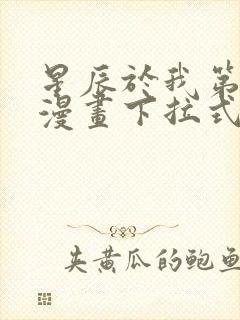 星辰於我第
漫畫下拉式
夹黄瓜的鲍鱼